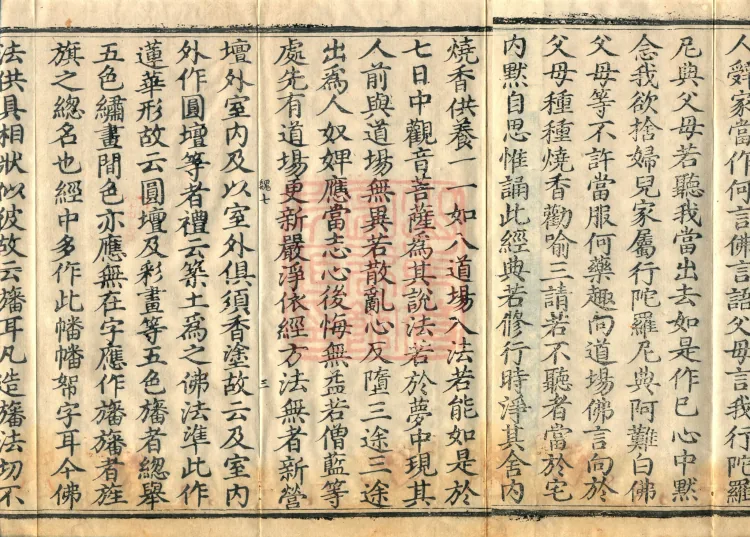 人辭家當作何言佛言語父母言我行陀羅
尼與父母若聽我當出去如是作已心中默
念我欲捨婦兒家屬行陀羅尼典阿難白佛
父母等不許當服何藥趣向道場佛言向於
父母種種燒香勸喻三請若不聽者當於宅
內默自思惟誦此經典若修行時淨其舍內
燒香供養一一如八道場入法若能如是於
七日中觀音菩薩為其說法若於夢中現其
人前與道場無異若散亂心反墮三途三途
出為人奴婢應當志心後悔無益若僧藍等
處先有道場更新嚴淨依經方法無者新營
三
壇外室內及以室外俱須香塗故云及室內
外作圓壇等者禮云築土為之佛法準此作
蓮華形故云圓壇及彩畫等五色旛者總舉
五色繡畫間色亦應無在字應作旛旛者旌
旗之總名也經中多作此幡幡帑字耳今佛
法供具相狀似彼故云旛耳凡造旛法切不